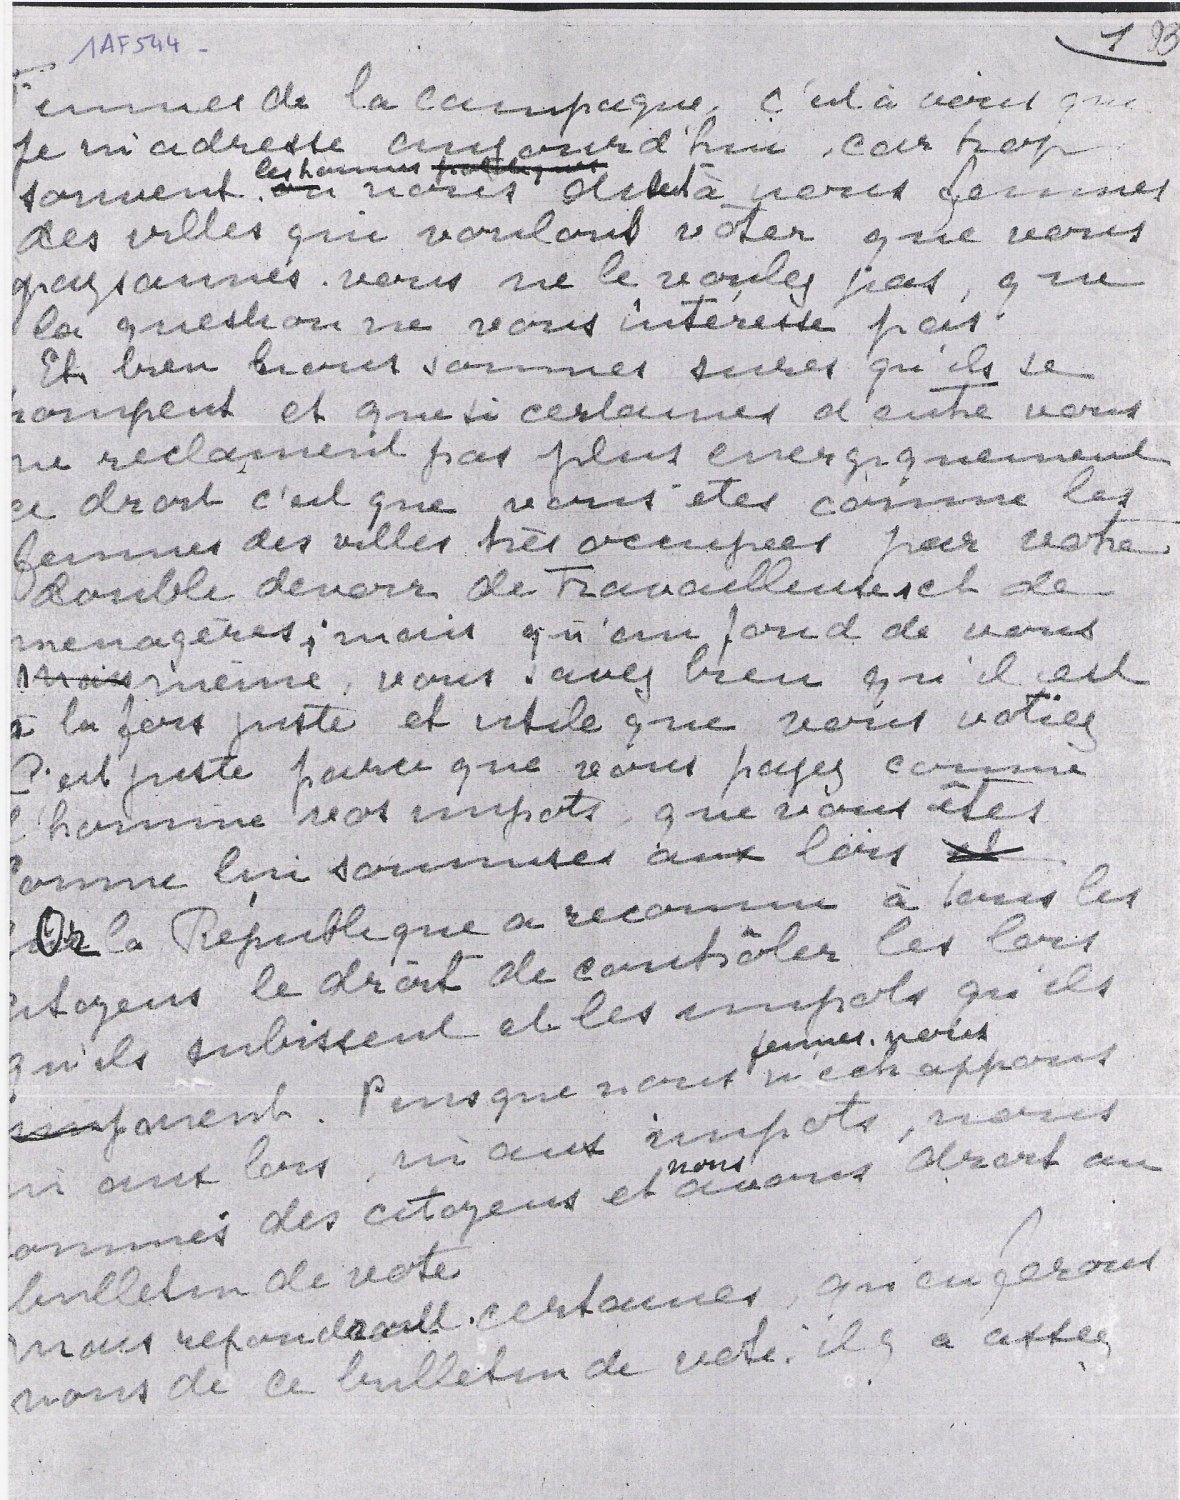 1AF544 -
1 93
Femmes de la campagne, c'est à vous que
je m'adresse aujourd'hui, car trop
les hommes politiques
souvent. on nous disent à nous femmes
des villes qui voulons voter que vous
paysannes. vous ne le voulez pas, que
la question ne vous intéresse pas.
Et bien nous sommes sures qu'ils se
trompent et que si certaines d'entre vous
ne reclament pas plus energiquement
ce droit c'est que vous etes comme les
femmes des villes très occupees par votre
double devoir de Travailleuses et de
menagères, mais qu'au fond de vous
mais même, vous savez bien qu'il est
à la fois juste et utile que vous votiez
C'est juste parce que vous payez comme
l'homme vos impots, que vous êtes
comme lui soumises aux lois et
Or la République a reconnu à tous les
citoyens le droit de contrôler les lois
qu'ils subissent et les impots qu'ils
femmes. nous
paient. Puisque nous n'echappons
ni aux lois, ni aux impots, nous
nous
sommes des citoyens et avons droit au
bulletin de vote
mais repondront certaines, qu'en ferons
nous de ce bulletin de vote. il y a assez